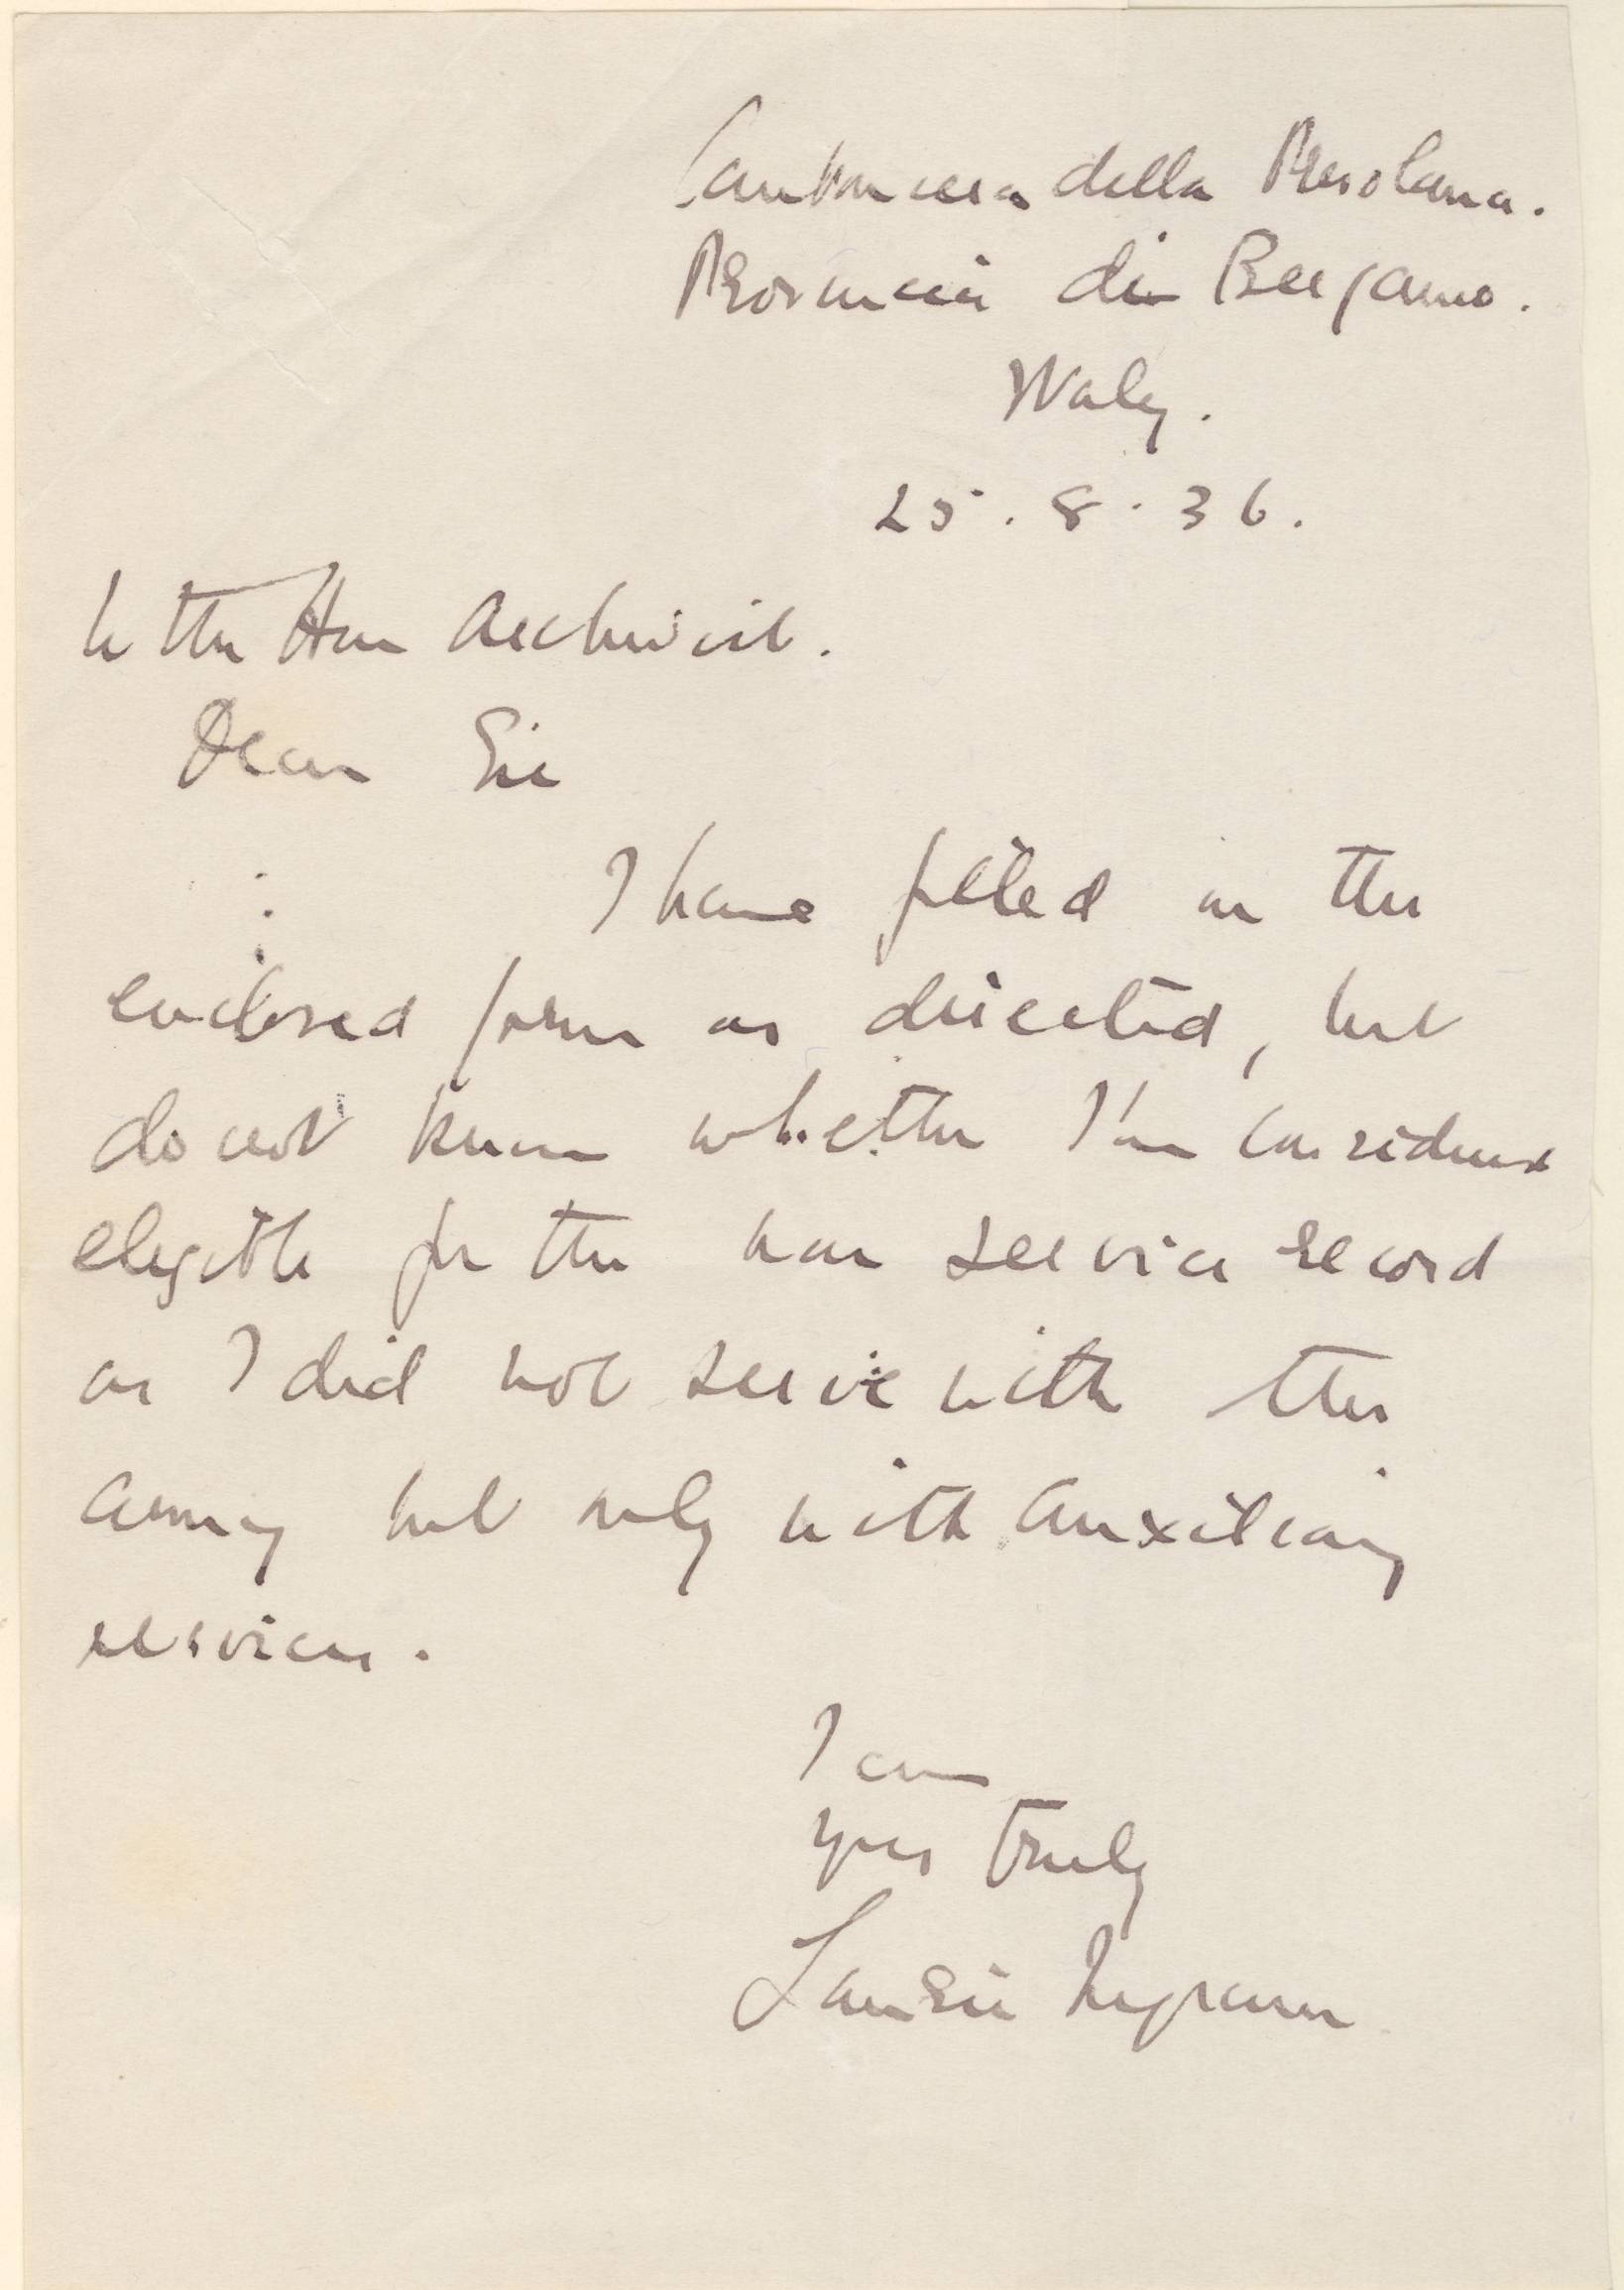 Cantoniera della Presolana.
Provincia di Bergamo.
Italy.
25.8.36.
To the Hon Archivist.
Dear Sir
I have filled in the
enclosed form as directed, but
do not know whether I'm considered
eligible for the war service record
as I did not serve with the
army but only with auxiliary
services.
I am
yrs truly
Ingram